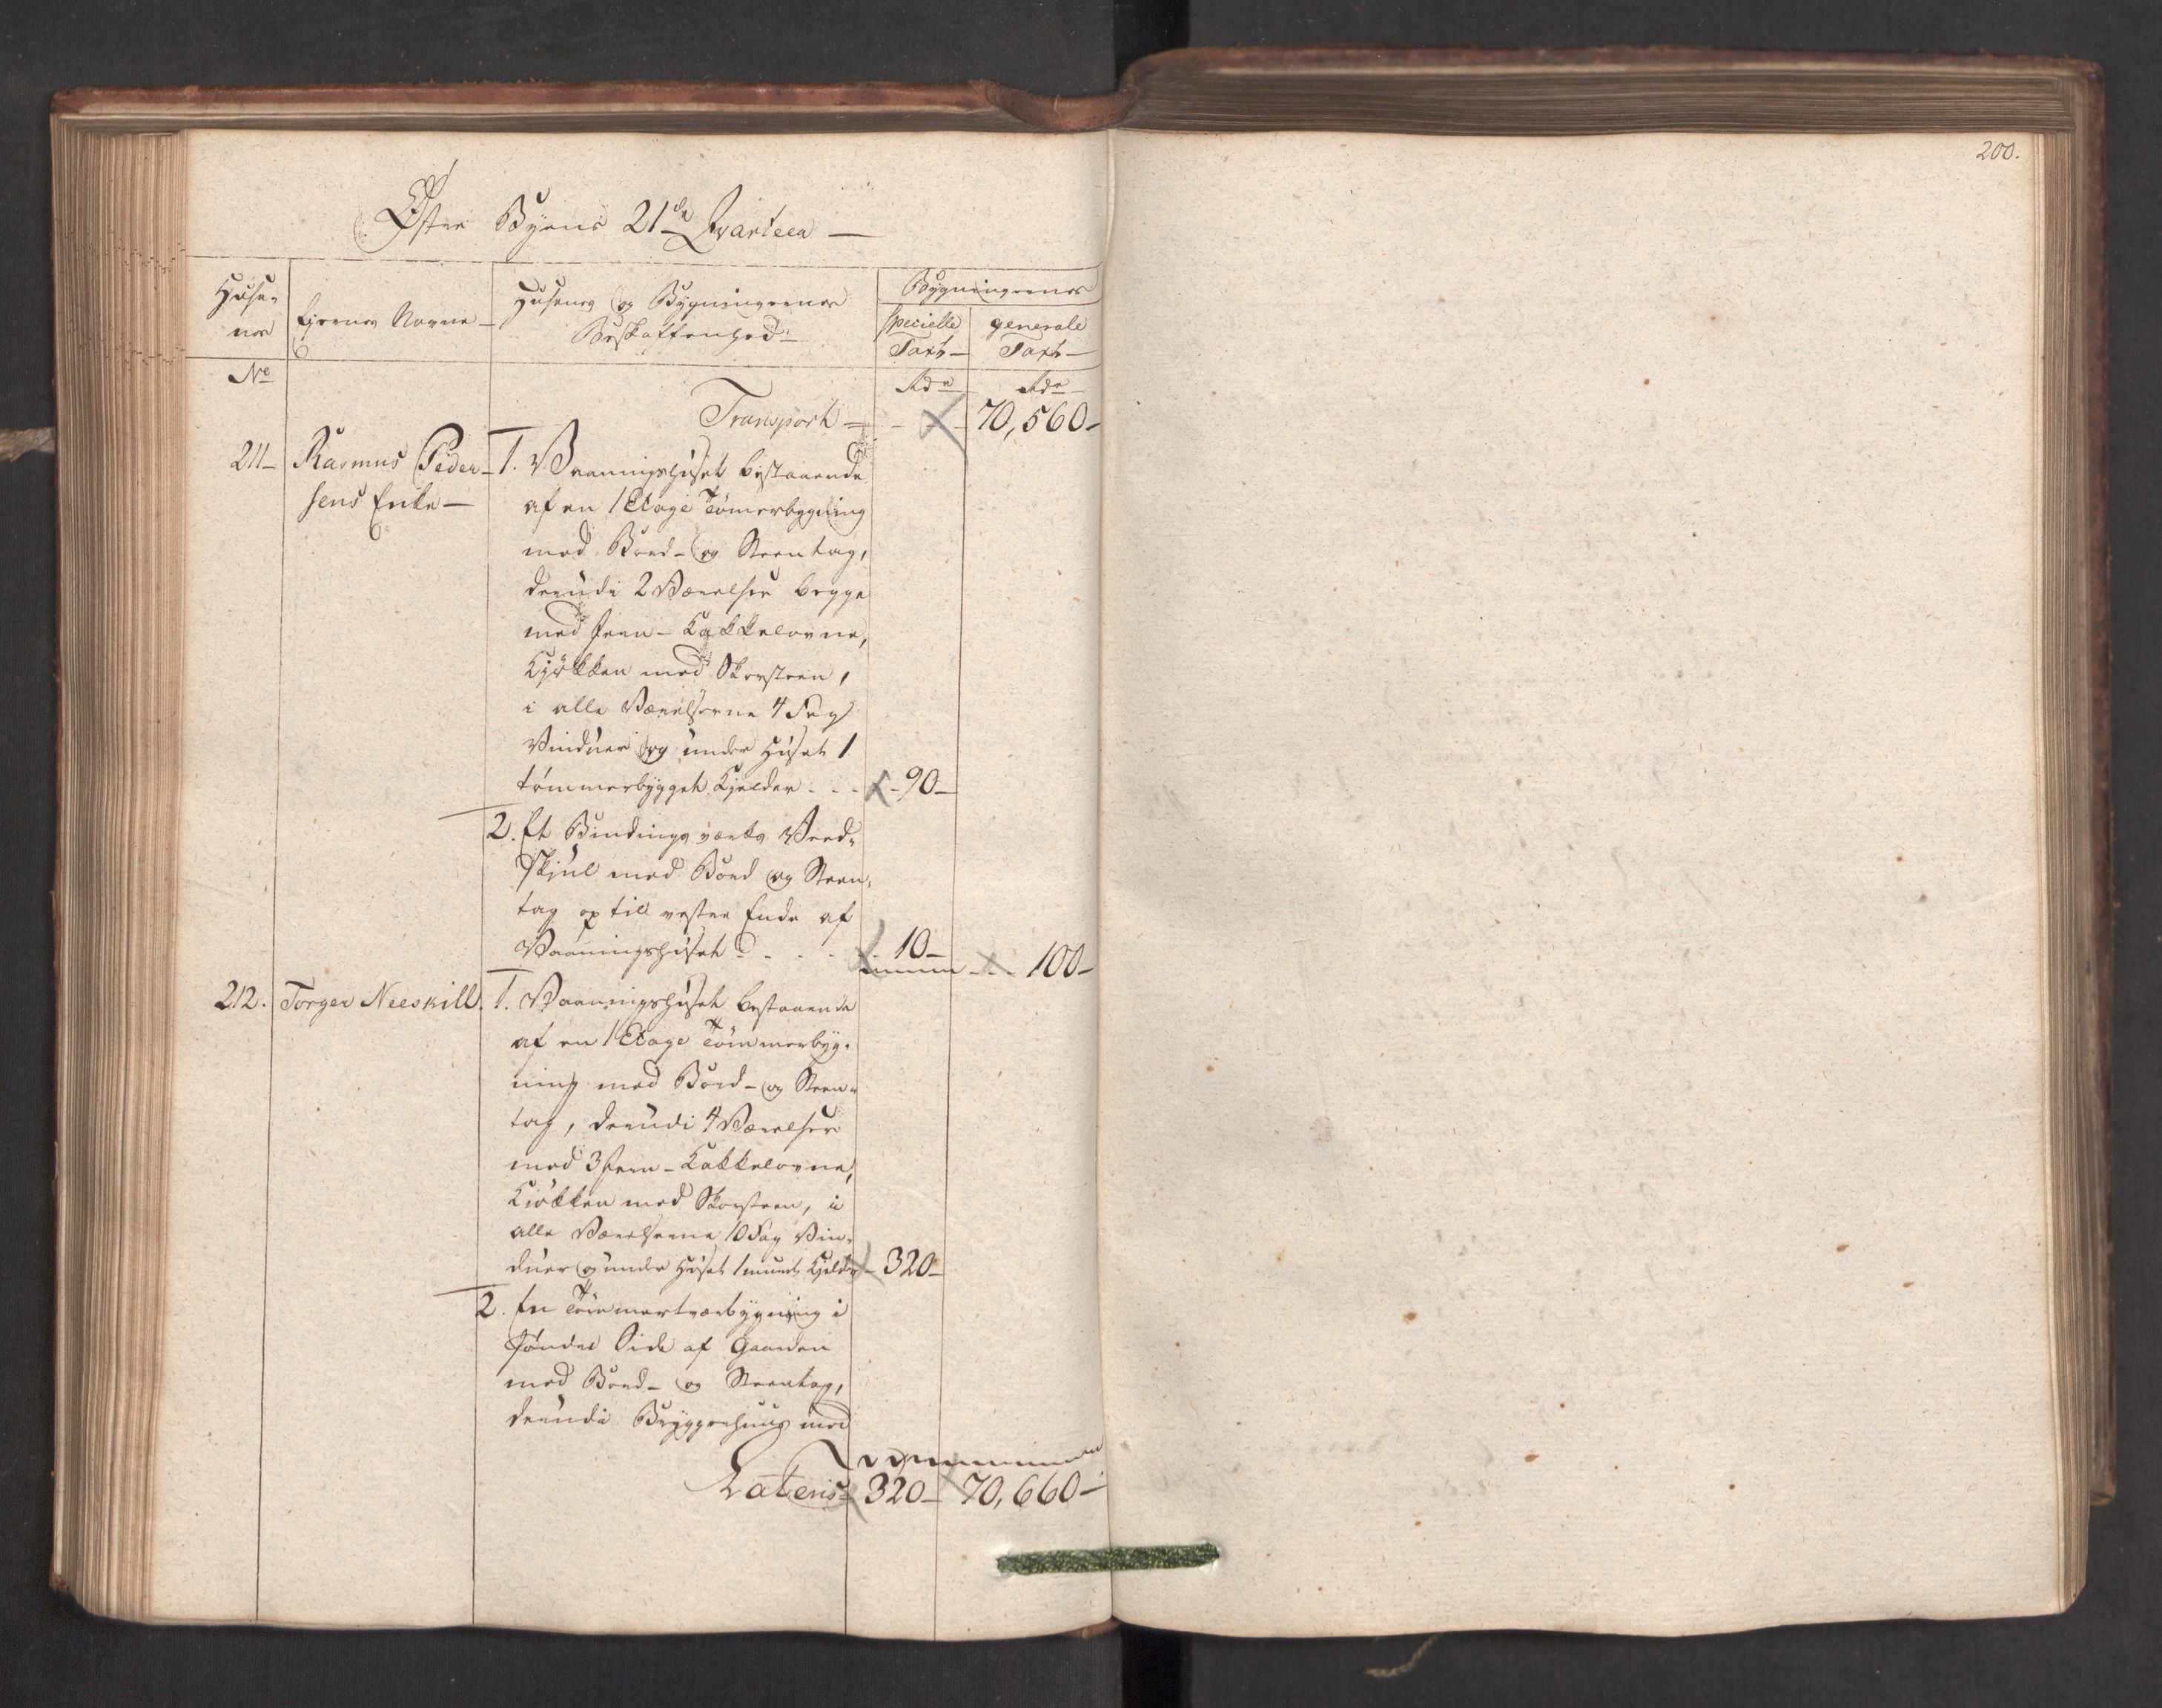 200.
Øster Byens 21de Qvarteer —
Huse-
nes
Ejernes Navne —
Husenes og Bygningernes
Beskaffenhed —
Bygningernes
specielle
Taxt —
generale
Taxt —
No
Rdr
Rdr
Transport = - - 70,560 -
211 - Rasmus Peder- 1. Vaaningshuset bestaaende
sens Enke — af en 1 Etage Tømerbygning
med Bord- og Steentag,
derudi 2 Værelser begge
med Jern-Kakkelovne,
Kjøkken med Skorsteen,
i alle Værelserne 4 Fag
Vinduer og under Huset 1
tømmerbygget Kjelder - - - 90 -
2. Et Bindingsværks Veed-
skjul med Bord og Steen-
tag op til vestre Ende af
Vaaningshuset - - - - 10 - - - 100 -
212. Torger Neeskill. 1. Vaaningshuset bestaaende
af en 1 Etage Tømmerbyg-
ning med Bord- og Steen-
tag, derudi 4 Værelser
med 3 Jern-Kakkelovne,
Kiøkken med Skorsteen, i
alle Værelserne 10 Fag Vin-
duer og under Huset 1 muret Kjelder - 320 -
2. En Tømmertværbygning i
søndre Side af Gaarden
med Bord- og Steentag,
derudi Bryggerhuus med
Lateris = 320 - 70,660 -